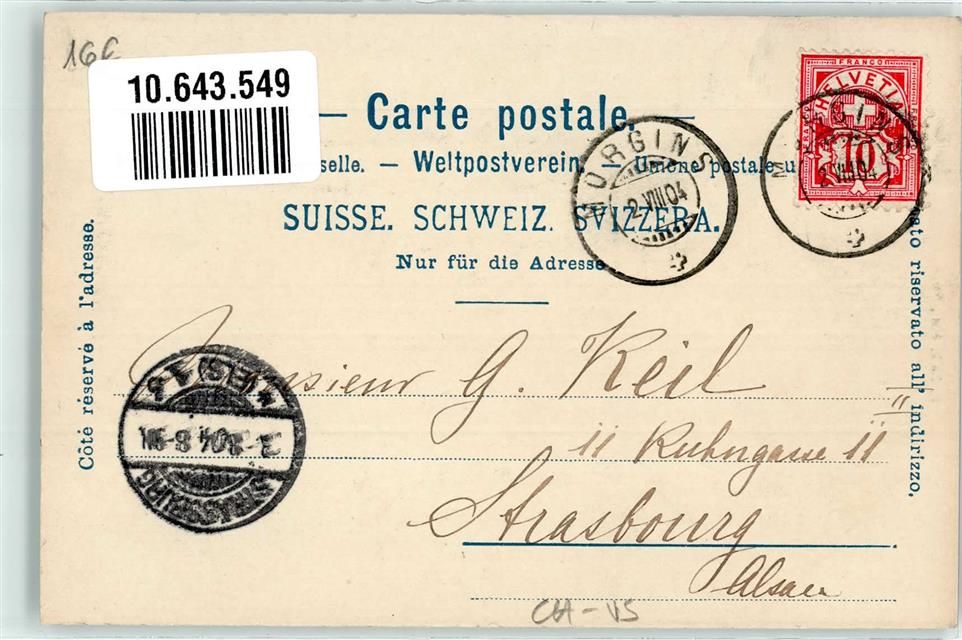 16€
10.643.549
FRANCO
HELVETIA
10
— Carte postale. —
selle. — Weltpostverein. — Unione postale u
SUISSE. SCHWEIZ. SVIZZERA.
Nur für die Adresse
MORGINS
2.VIII.04
2.VIII.04
Côté réservé à l'adresse.
ato riservato all' indirizzo.
STRASSBURG
3.8.04.8-9N.
Monsieur G. Keil
11 11
Strasbourg
Alsace
CH-VS